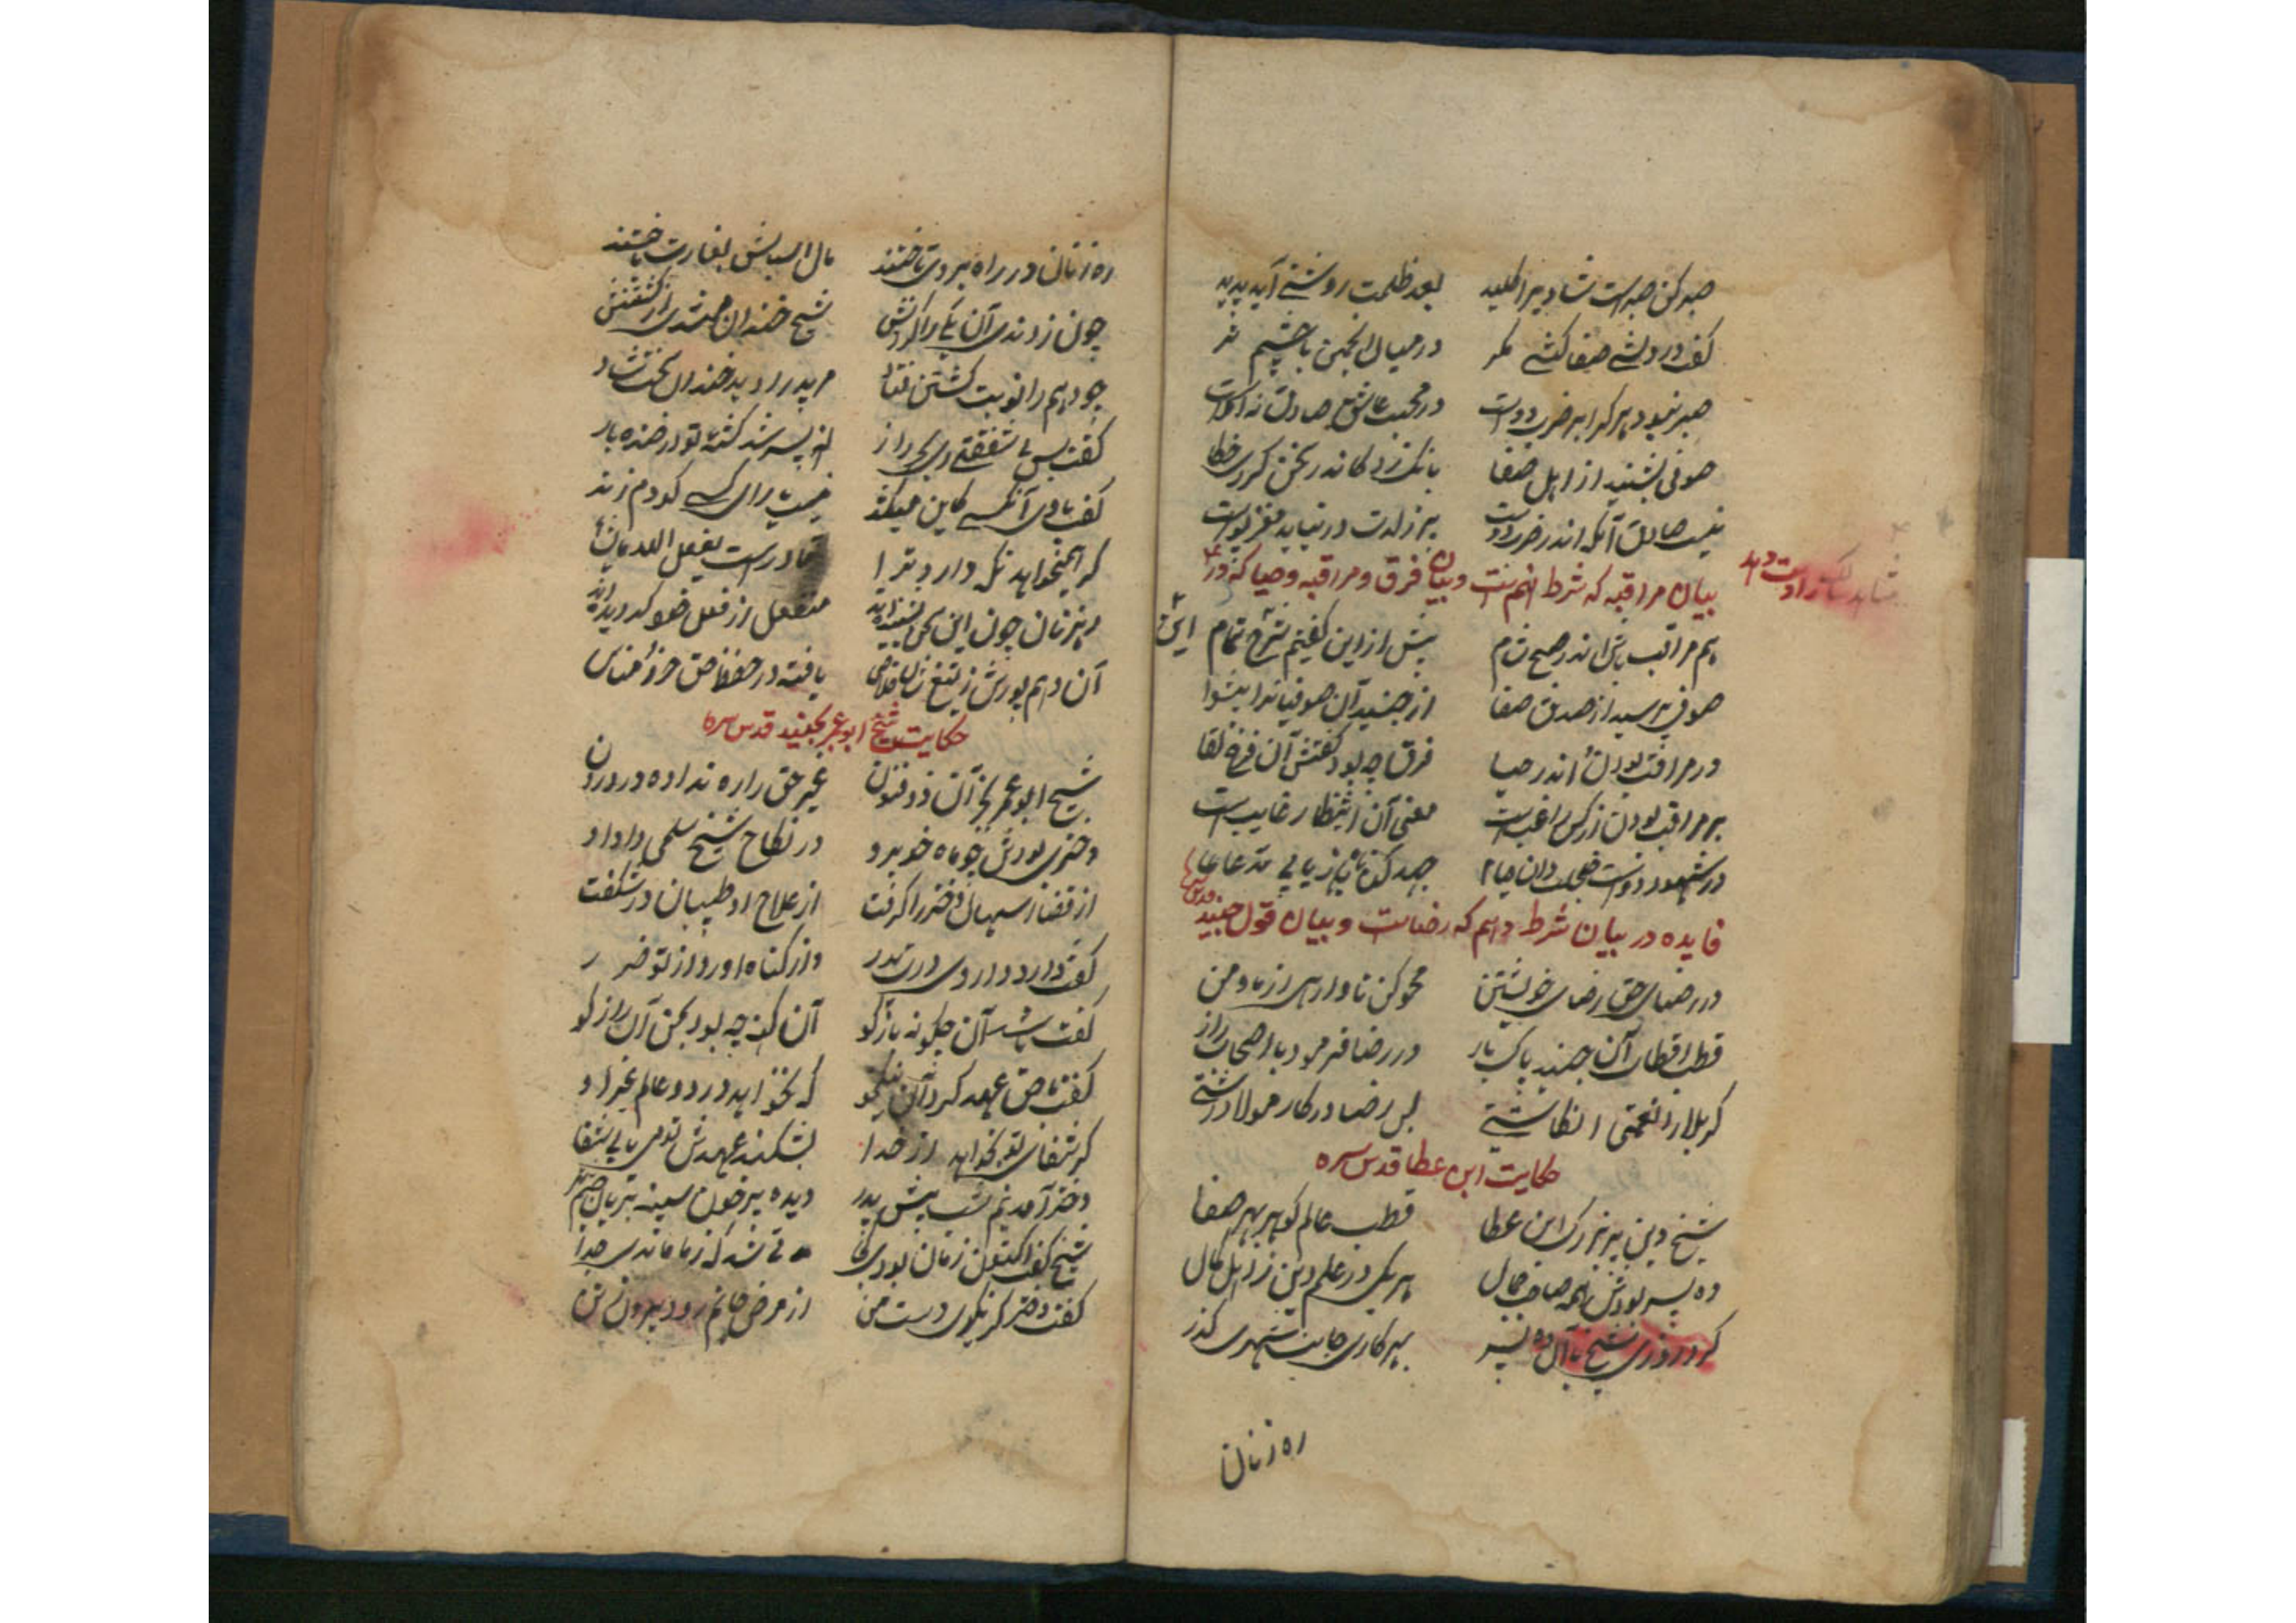 صبر کن صبر است شادیرا کلید بعد ظلمت روشنی آید پدید
کفت درویشی صفا کیشی مکر در میان انجمن با چشم تر
صبر نبود هر کرا بر ضرب دوست در محبت عاشق صادق نه اوست
صوفی بشنید از اهل صفا بانک زد کاندر سخن کردی خطا
نیست صادق آنکه اندر ضرب دوست پر ز لذت در نیابد مغز پوست
بیان مراقبه که شرط نهم است و بیان فرق و مراقبه و حیا که در
دست دهد
هم مراقب باش اندر صبح شام پیش از این کفتیم شرح تمام
این
صوفی پرسید از صدق صفا از جنید آن صوفیانرا پیشوا
در مراقب بودن اندر حیا فرق چه بود کفتش آن فرخ لقا
بر مراقب بودن معنی آن انتظار غایب است
در شهود دوست خجلت دان حیا جهد کن
فایده در بیان شرط دهم که رضاست و بیان قول جنید قدس سره
در رضای حق رضای خویشتن محو کن تا وارهی از ما و من
قطب اقطاب آن جنید پاک باز در رضا فرمود با اصحاب راز
کر بلا را نعمتی انکاشتی بس رضا در کار مولا داشتی
حکایت ابن عطا قدس سره
شیخ دین پیر بزرک ابن عطا قطب عالم کوهر بهر صفا
ده پسر بودش همه صاحب جمال هر یکی در علم دین ز اهل کمال
کرد روزی شیخ با آن ده پسر بهر کاری جانب شهری کذر
ره زنان
ره زنان در راه بر وی تاختند مال اسبابش بغارت باختند
چون زدندی آن یکی را کردنش شیخ خندان میشدی از کشتنش
چو دهم را نوبت کشتن فتاد مر پدر را دید خندان سخت شاد
کفت بس بی شفقتی ای نه پسر شد کشته تو در خنده باز
کفت با وی آنکسی کاین میکند نیست یارای کسی کو دم زند
کر همیخواهد نکه دارد ترا قادر است یفعل الله مایشا
رهزنان چون این سخن بشنیده اند منفعل از فعل خود کردیده اند
آن دهم پورش ز تیغ شان خلاص یافته در حفظ حق
حکایت شیخ ابو عمر نجید قدس سره
شیخ ابو عمر نجید آن ذو فنون غیر حق را ره نداده در درون
دختری بودش چو ماه خوب رو در نکاح شیخ سلمی داد او
از قضا اسهال دختر را کرفت از علاج او طبیبان در شکفت
کفت دارد داروی دردت پدر واز کناه او را از تو ضرر
کفت آن چکونه باز کو آن کنه چه بود بمن آن راز کو
کفت با حق عهد کرد آن نیکخو که نخواهد در دو عالم غیر او
کر شفای تو بخواهد از خدا بشکند عهدش تو می یابی شفا
دختر آمد نیم شب پیش پدر دیده پر خون سینه بریان چشم تر
شیخ کفت اکنون زمان بودی کجا مدتی شد که ز ما ماندی جدا
کفت دختر کر نکوی دست من از مرض جانم رود بیرون ز تن